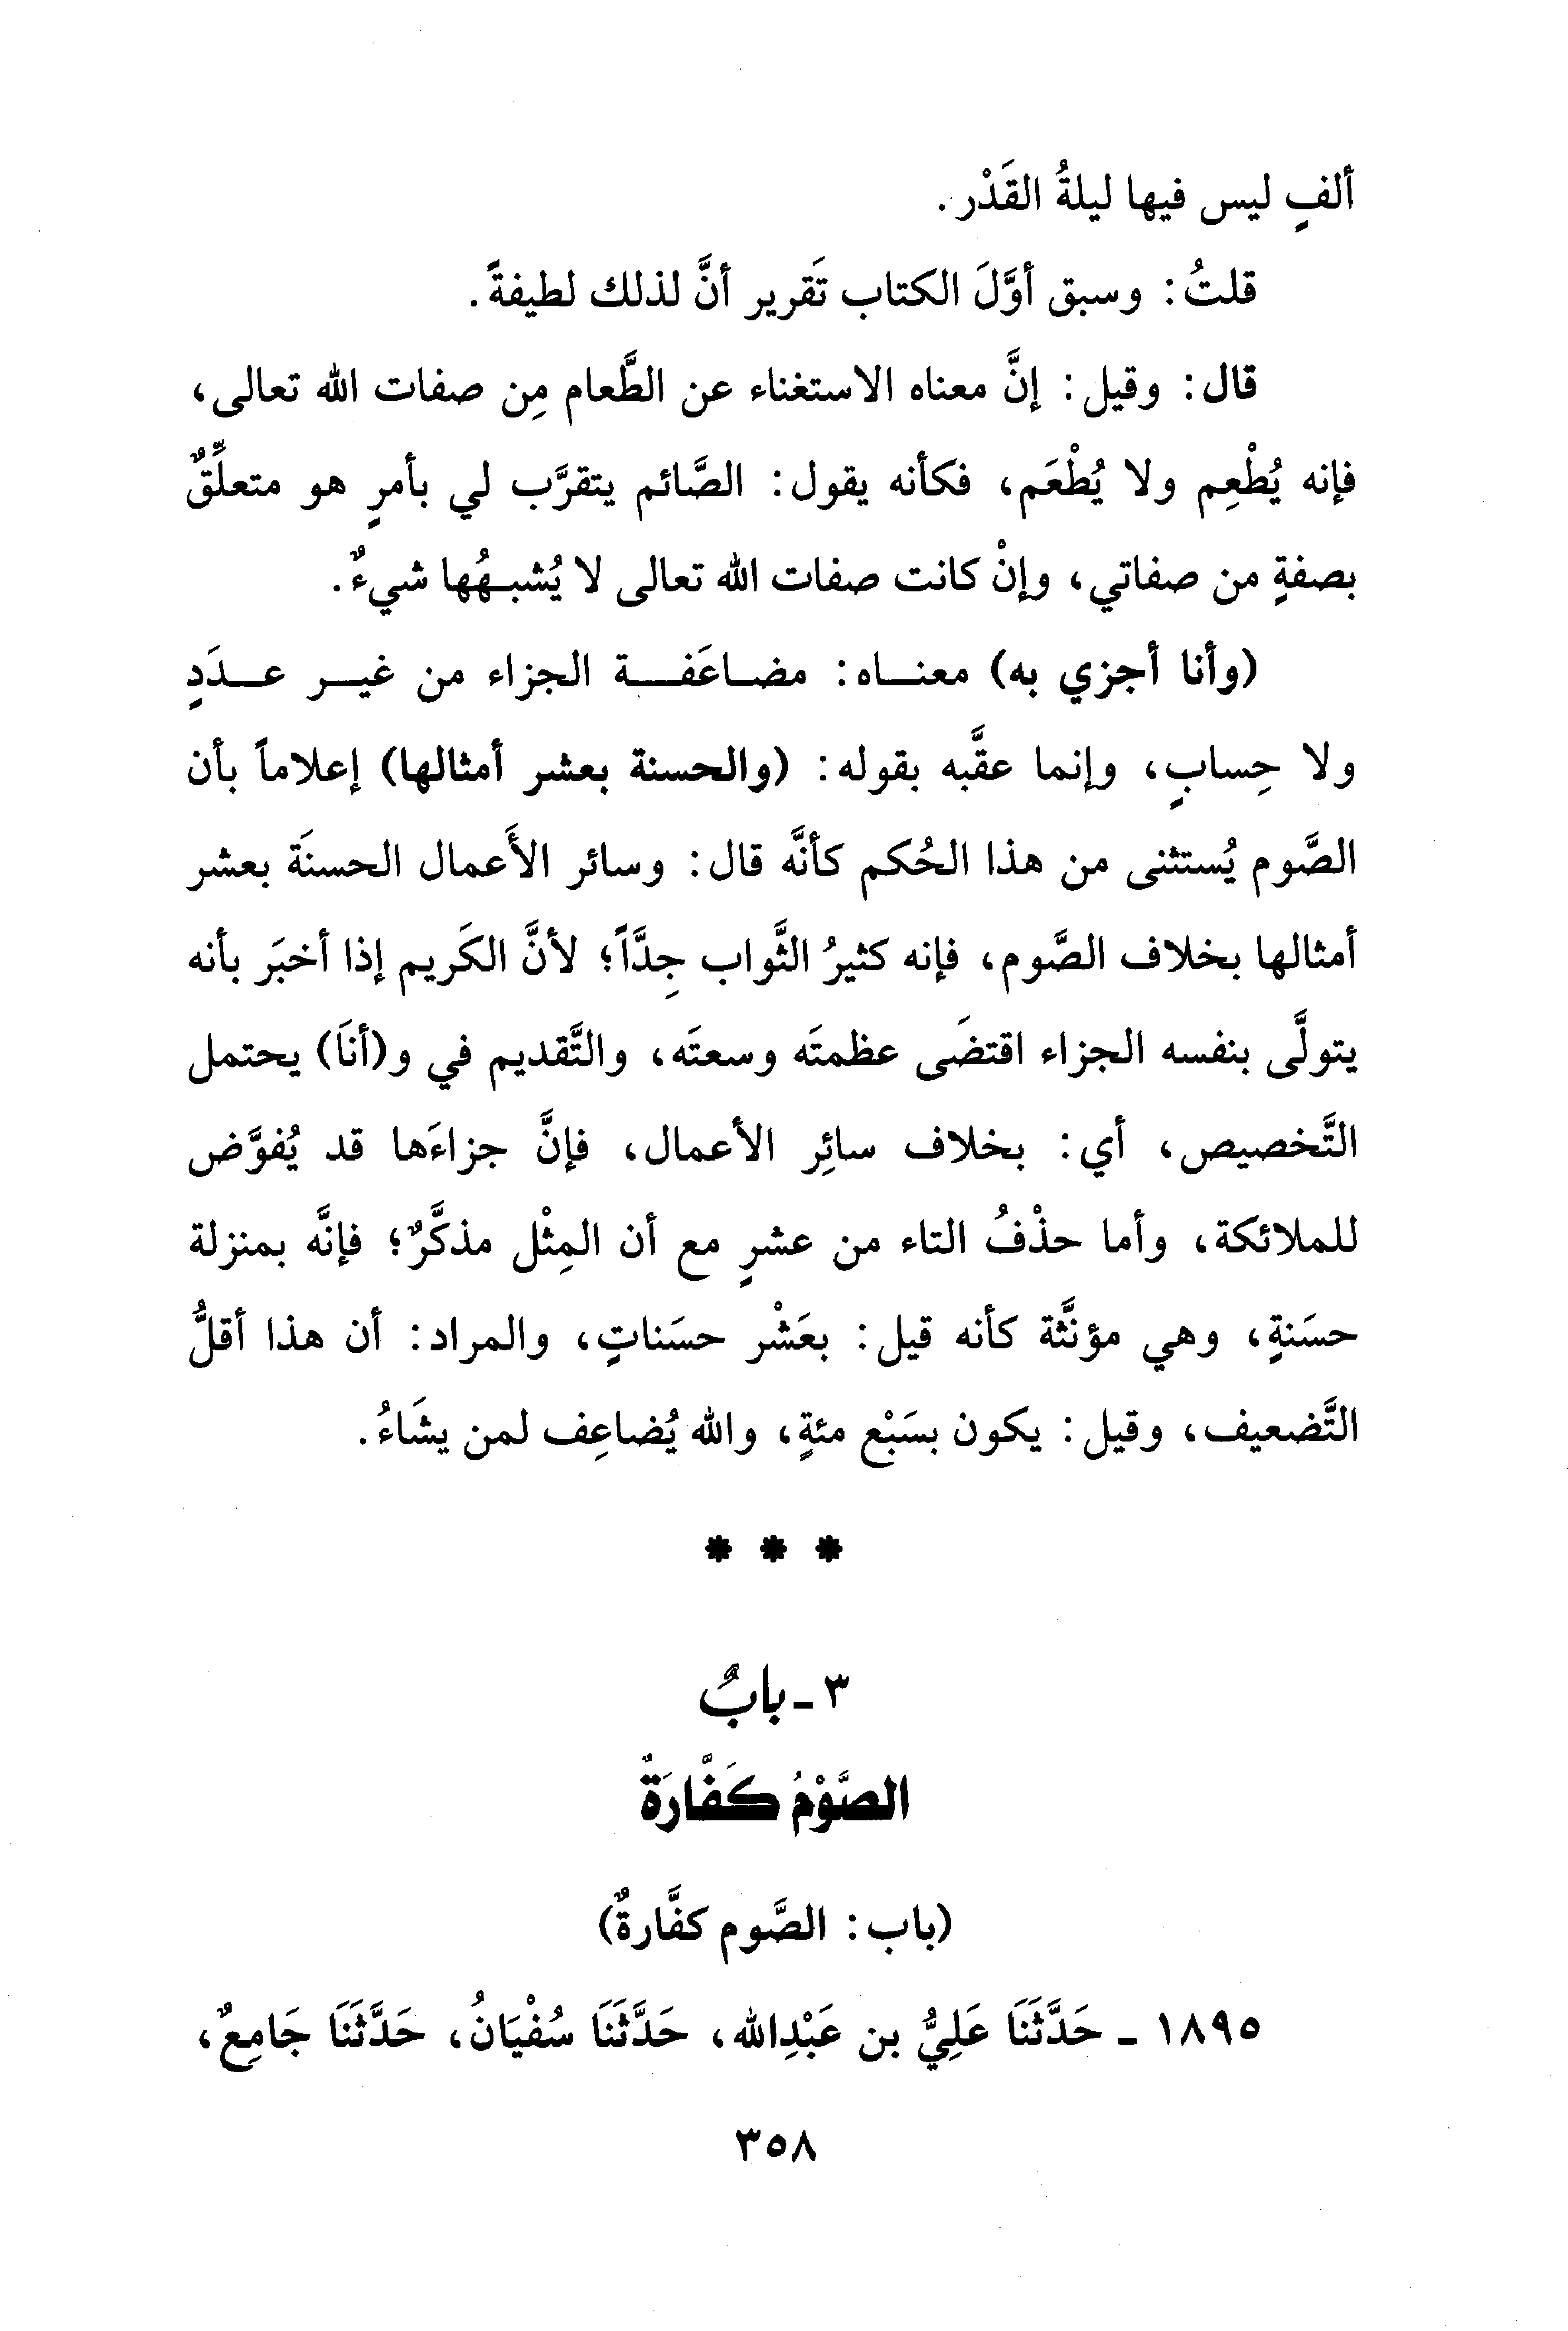 ألفٍ ليس فيها ليلةُ القَدْر.
قلتُ: وسبق أوَّلَ الكتاب تَقرير أنَّ لذلك لطيفةً.
قال: وقيل: إنَّ معناه الاستغناء عن الطَّعام مِن صفات الله تعالى،
فإنه يُطْعِم ولا يُطْعَم، فكأنه يقول: الصَّائم يتقرَّب لي بأمرٍ هو متعلِّقٌ
بصفةٍ من صفاتي، وإنْ كانت صفات الله تعالى لا يُشبهُها شيءٌ.
(وأنا أجزي به) معناه: مضاعَفة الجزاء من غير عدَدٍ
ولا حِسابٍ، وإنما عقَّبه بقوله: (والحسنة بعشر أمثالها) إعلاماً بأن
الصَّوم يُستثنى من هذا الحُكم كأنَّه قال: وسائر الأَعمال الحسنَة بعشر
أمثالها بخلاف الصَّوم، فإنه كثيرُ الثَّواب جِدَّاً؛ لأنَّ الكَريم إذا أخبَر بأنه
يتولَّى بنفسه الجزاء اقتضَى عظمتَه وسعتَه، والتَّقديم في و(أنَا) يحتمل
التَّخصيص، أي: بخلاف سائِر الأعمال، فإنَّ جزاءَها قد يُفوَّض
للملائكة، وأما حذْفُ التاء من عشرٍ مع أن المِثْل مذكَّرٌ؛ فإنَّه بمنزلة
حسَنةٍ، وهي مؤنَّثة كأنه قيل: بعَشْر حسَناتٍ، والمراد: أن هذا أقلُّ
التَّضعيف، وقيل: يكون بسَبْع مئةٍ، والله يُضاعِف لمن يشَاءُ.
* * *
٣ - بابٌ
الصَّوْمُ كَفَّارَةٌ
(باب: الصَّوم كفَّارةٌ)
١٨٩٥ - حَدَّثَنَا عَلِيُّ بن عَبْدِالله، حَدَّثَنَا سُفْيَانُ، حَدَّثَنَا جَامِعٌ،
٣٥٨